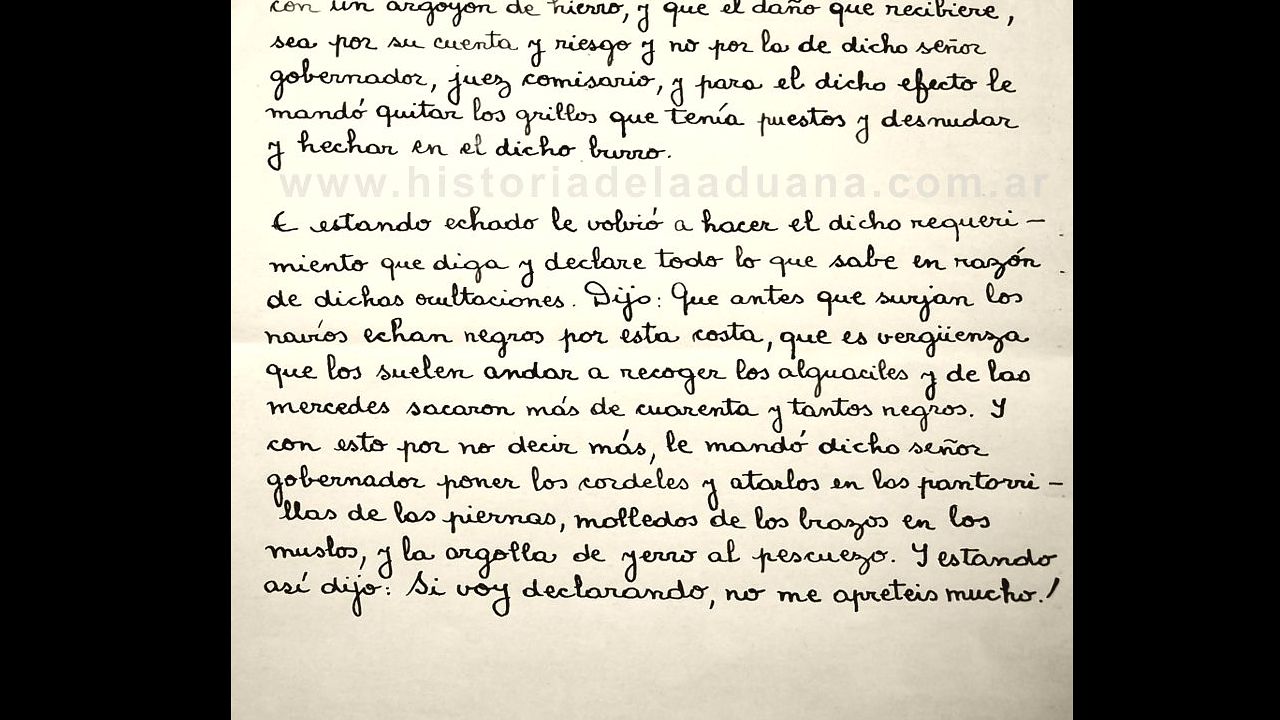 con un argoyon de hierro, y que el daño que recibiere,
sea por su cuenta y riesgo y no por la de dicho señor
gobernador, juez comisario, y para el dicho efecto le
mandó quitar los grillos que tenía puestos y desnudar
y hechar en el dicho burro.
www.historiadelaaduana.com.ar
E estando echado le volvió a hacer el dicho requeri-
miento que diga y declare todo lo que sabe en razón
de dichas ocultaciones. Dijo: Que antes que surjan los
navíos echan negros por esta costa, que es vergüenza
que los suelen andar a recoger los alguaciles y de las
mercedes sacaron más de cuarenta y tantos negros. Y
con esto por no decir más, le mandó dicho señor
gobernador poner los cordeles y atarlos en las pantorri-
llas de las piernas, molledos de los brazos en los
muslos, y la argolla de yerro al pescuezo. Y estando
así dijo: Si voy declarando, no me apreteis mucho.!